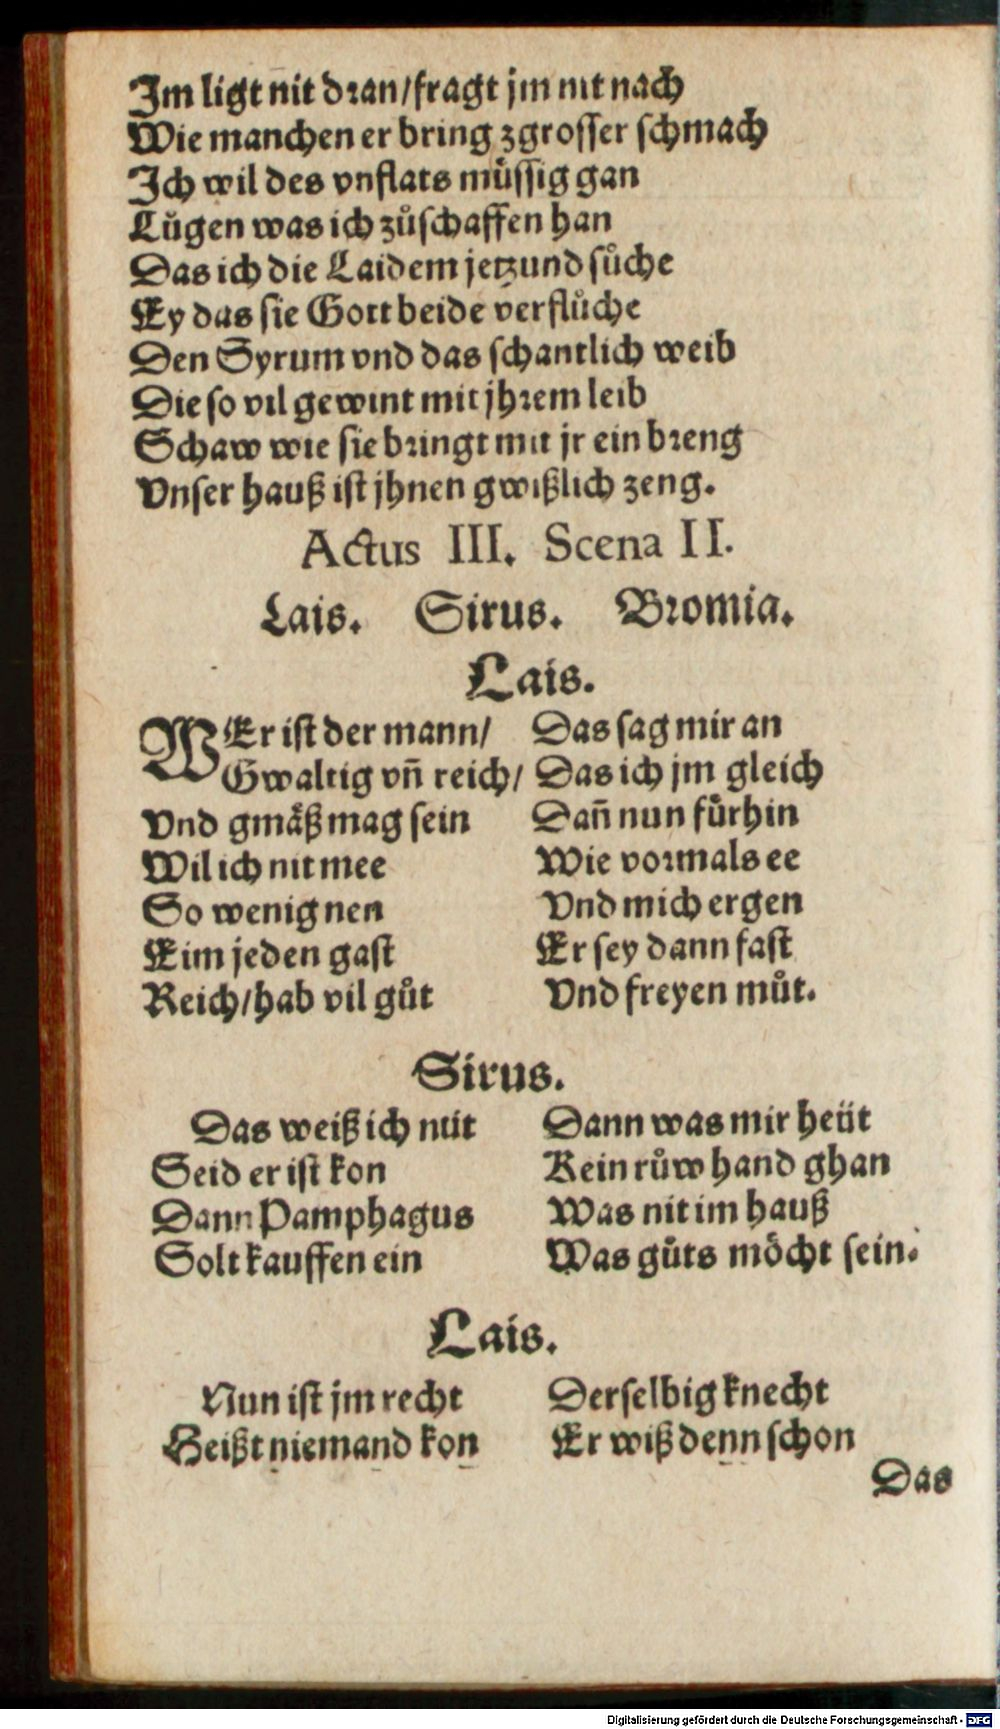 Im ligt nit dran/fragt jm nit nach
Wie manchen er bring zgrosser schmach
Ich wil des vnflats müssig gan
Lůgen was ich zůschaffen han
Das ich die Laidem jetzund sůche
Ey das sie Gott beide verflůche
Den Syrum vnd das schantlich weib
Die so vil gewint mit jhrem leib
Schaw wie sie bringt mit jr ein breng
Vnser hauß ist jhnen gwißlich zeng.
Actus III. Scena II.
Lais. Sirus. Bromia.
Lais.
WEr ist der mann/ Das sag mir an
Gwaltig vñ reich/ Das ich jm gleich
Vnd gmäß mag sein Dañ nun fürhin
Wil ich nit mee Wie vormals ee
So wenig nen Vnd mich ergen
Eim jeden gast Er sey dann fast
Reich/hab vil gůt Vnd freyen můt.
Sirus.
Das weiß ich nüt Dann was mir heüt
Seid er ist kon Kein růw hand ghan
Dann Pamphagus Was nit im hauß
Solt kauffen ein Was gůts möcht sein.
Lais.
Nun ist jm recht Derselbig knecht
Heißt niemand kon Er wiß denn schon
Das
Digitalisierung gefördert durch die Deutsche Forschungsgemeinschaft - DFG